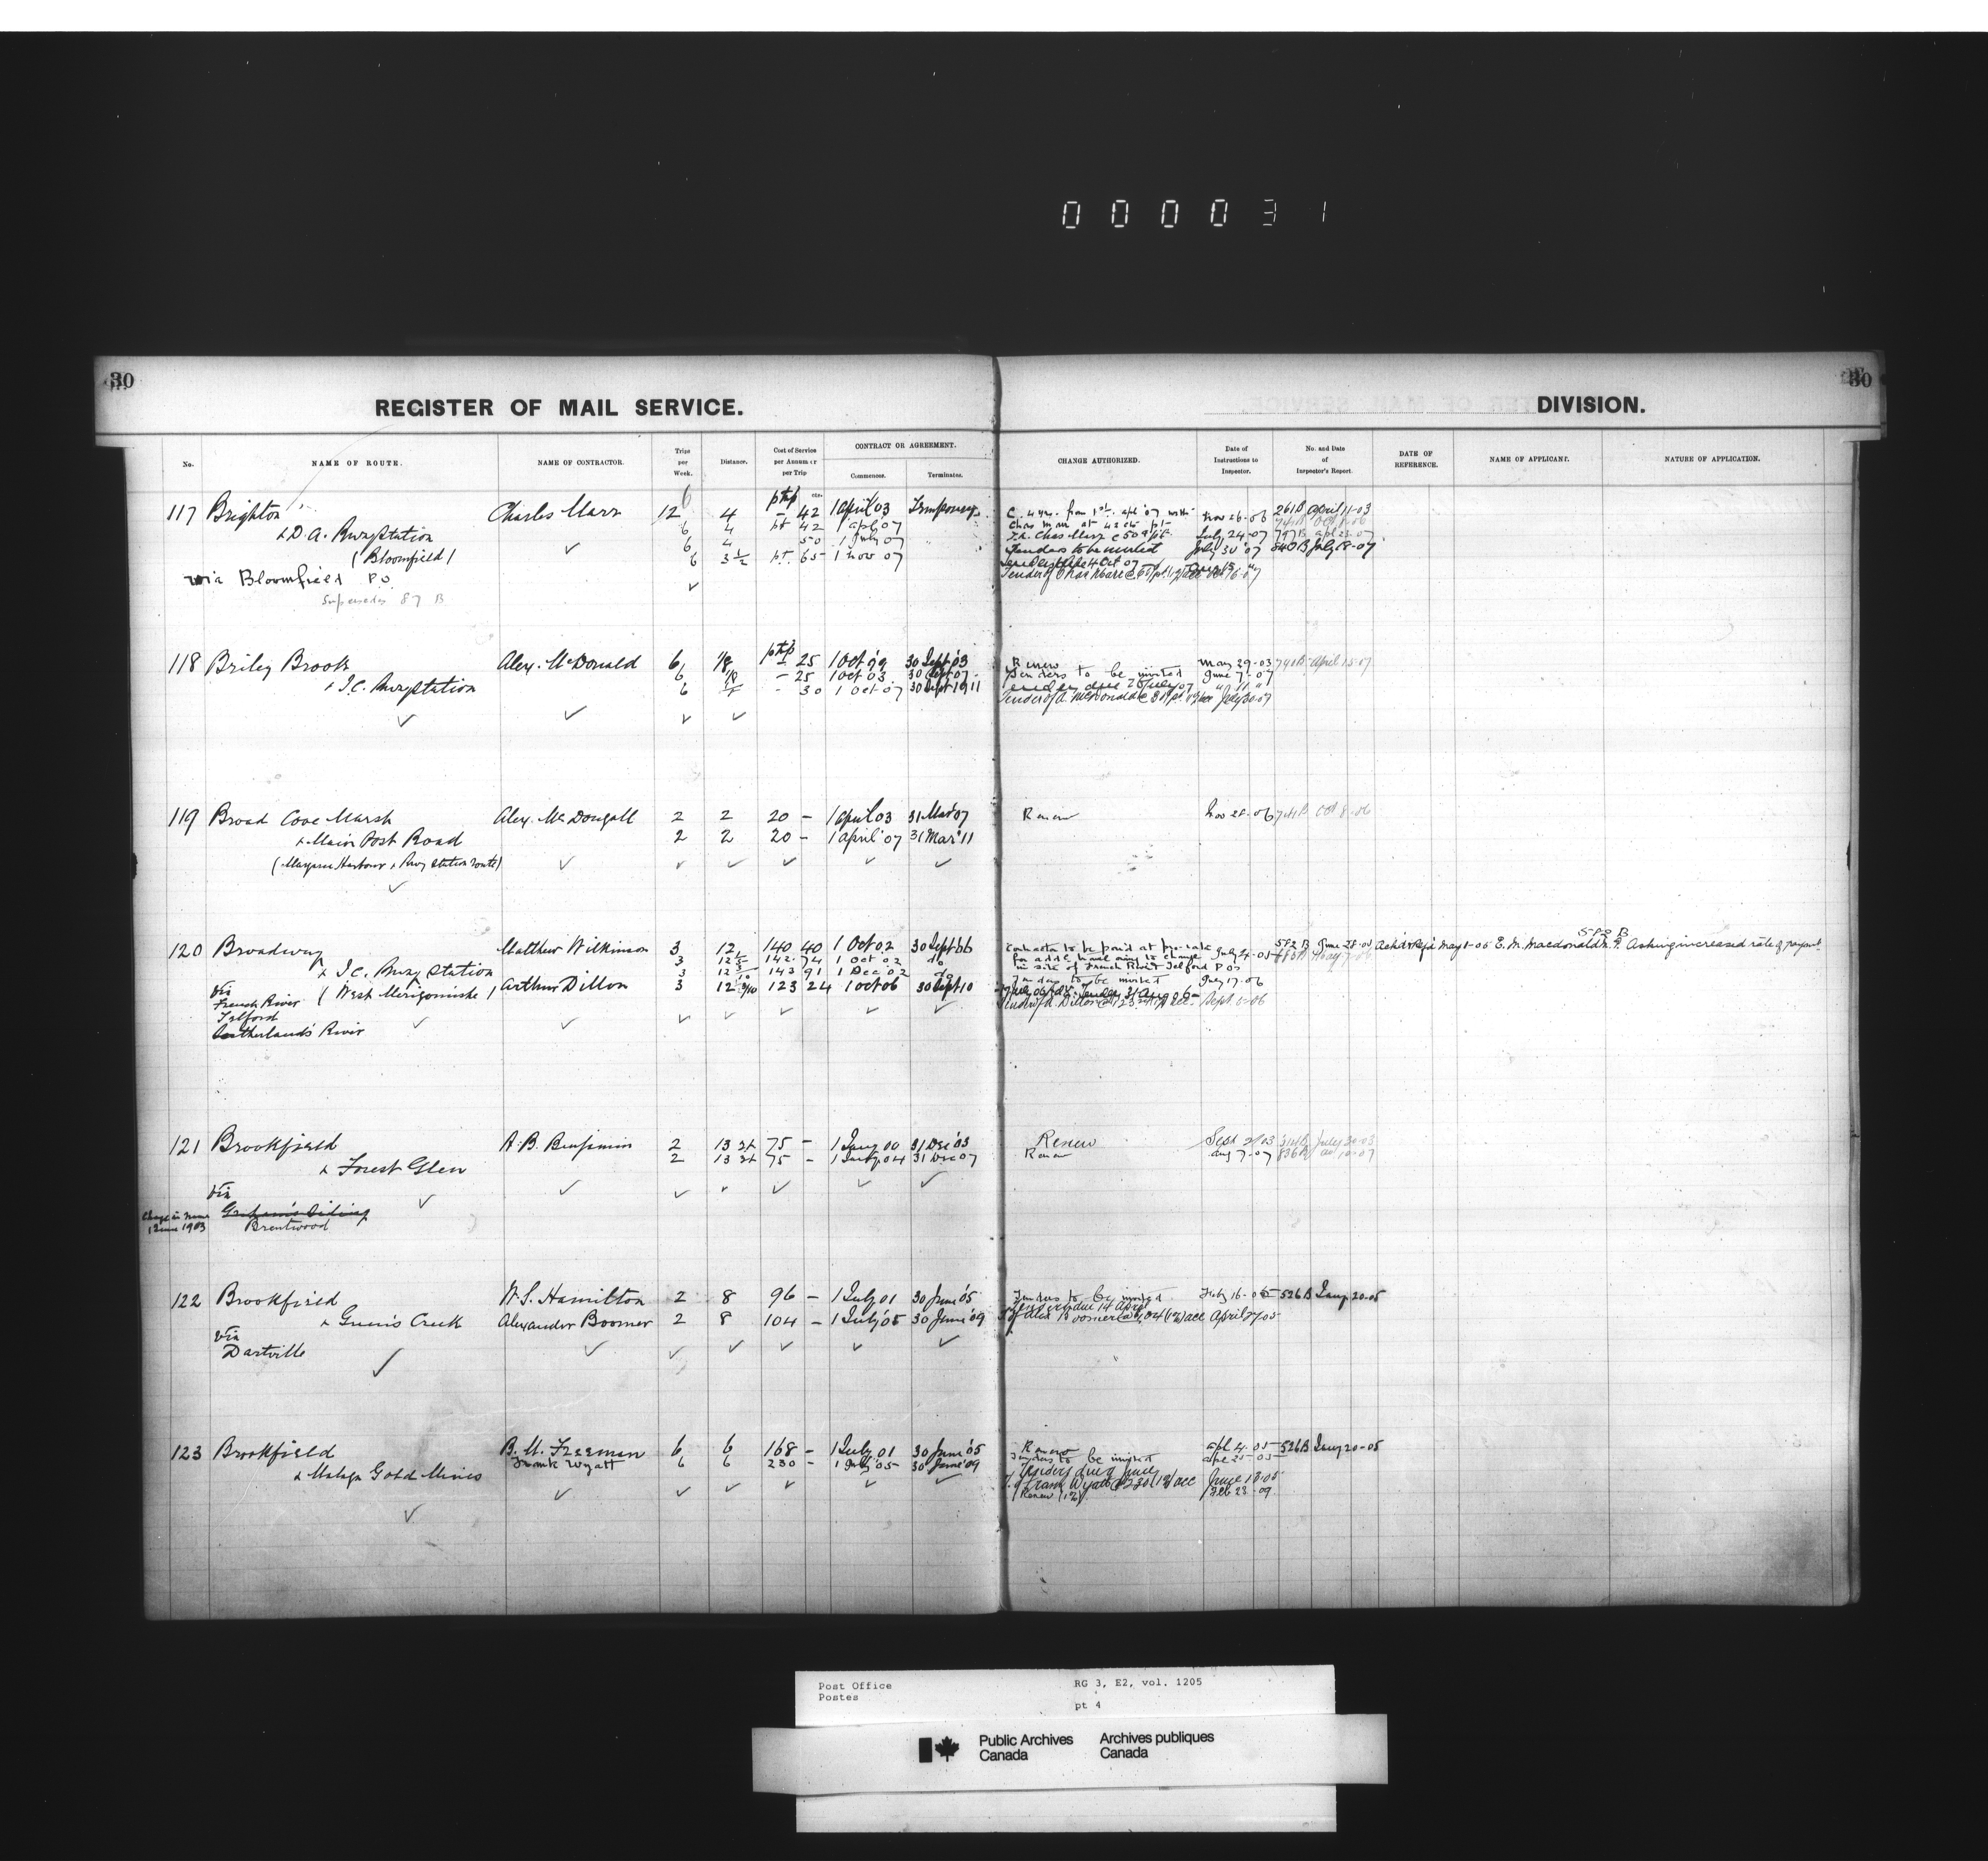 0 0 0 0 3 1
30
30
REGISTER OF MAIL SERVICE.
DIVISION.
No. NAME OF ROUTE. NAME OF CONTRACTOR. Trips per Week. Distance. Cost of Service per Annum or per Trip CONTRACT OR AGREEMENT. Commences. Terminates. CHANGE AUTHORIZED. Date of Instructions to Inspector. No. and Date of Inspector's Report. DATE OF REFERENCE. NAME OF APPLICANT. NATURE OF APPLICATION.
cts.
117 Brighton Charles Marr 12 4 – 42 1 April 03 Temporary 261B April 11-03
6
& D.A. Rwy Station 6 4 pt 42 1 apl 07 Nov 26-06
6 4 50 1 July 07 July 24-07 797B apl 23-07
(Bloomfield) 6 3 1/2 pt. 65 1 Nov 07 Tenders to be invited July 30 07 840B July 18-07
via Bloomfield P.O.
Supersedes 87 B
118 Briley Brook Alex. McDonald 6 1/8 – 25 1 Oct 99 30 Sept 03 Renew May 29-03 741B April 15-07
6 1/8 – 25 1 Oct 03 30 Sept 07 Tenders to be invited June 7-07
& I.C. Rwy Station 6 - 30 1 Oct 07 30 Sept 1911 Tenders due 26 July 07 " 11 "
Tender of A. McDonald July 30-07
119 Broad Cove Marsh Alex. McDougall 2 2 20 – 1 April 03 31 Mar 07 Renew Nov 28-06 741B Oct 8-06
& Main Post Road 2 2 20 – 1 April 07 31 Mar 11
(Margaree Harbour & Rwy Station route)
582 B
120 Broadway Matthew Wilkinson 3 12 140 40 1 Oct 02 30 Sept 06 Contractor to be paid at pro-rata 582 B June 28-05 Ackd & Rep'd May 8-05 E. M. Macdonald M.P. Asking increased rate of payment
3 142.74 1 Oct 02 do for addl travel owing to change July 24-05
& I.C. Rwy Station 3 143 91 1 Dec 02 do in site of French River & Telford P Os
(West Merigomishe) Arthur Dillon 3 12 3/10 123 24 1 Oct 06 30 Sept 10 Tenders to be invited July 17-06
Via
French River
Telford Tender of A. Dillon @ 123.24 Acc. Sept 6-06
Sutherland's River
121 Brookfield A. B. Benjamin 2 13 75 – 1 Jany 00 31 Dec 03 Renew Sept 2/03 314B July 30-03
& Forest Glen 2 13 75 – 1 Jany 04 31 Dec 07 Renew Aug 7-07 836B
Via
Graham's Siding
Change in name
1 June 1903 Brentwood
122 Brookfield W. S. Hamilton 2 8 96 – 1 July 01 30 June 05 Tenders to be invited Feby 16-05 526 B Jany 20-05
Tenders due 14 April
& Green's Creek Alexander Boomer 2 8 104 – 1 July 05 30 June 09 T. of Alex Boomer @ $104 (1½) acc April 27.05
Via
Dartville
123 Brookfield B. H. Freeman 6 6 168 – 1 July 01 30 June 05 Renew apl 4-05 526B Jany 20-05
& Malaga Gold Mines Frank Wyatt 6 6 230 – 1 July 05 30 June 09 Tenders to be invited apl 25-05
T. of Frank Wyatt @ $230 acc June 13.05
Renew Feb 23-09
Post Office
Postes
RG 3, E2, vol. 1205
pt 4
Public Archives Canada
Archives publiques Canada